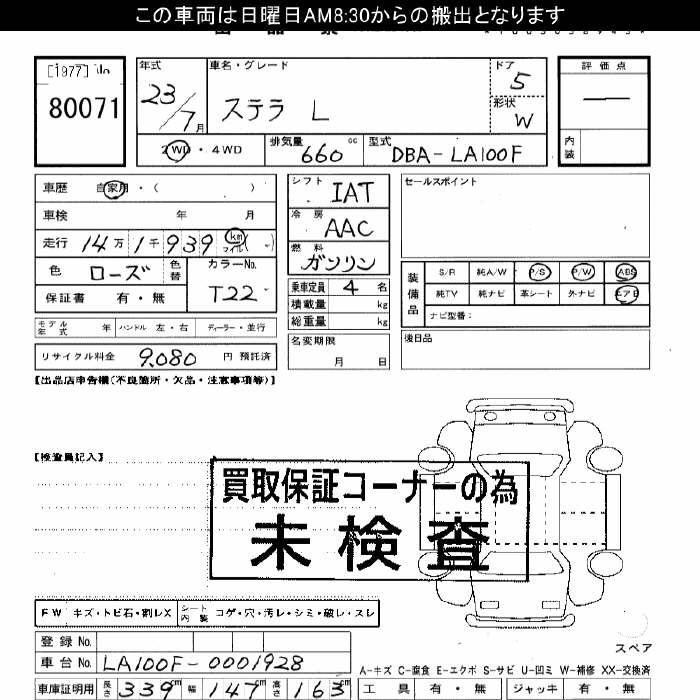 この車両は日曜日AM8:30からの搬出となります
[1977] No
80071
年式
23/7月
車名・グレード
ステラ L
ドア
5
形状
W
2WD・4WD
排気量
660 cc
型式
DBA-LA100F
評価点
—
内装
車歴 自家用・( )
車検 年 月
走行 14万1千939 km マイル( )
色 ローズ
色替
カラーNo.
T22
保証書 有・無
モデル年式 年 ハンドル 左・右 ディーラー・並行
リサイクル料金 9,080 円 預託済
シフト IAT
冷房 AAC
燃料 ガソリン
乗車定員 4 名
積載量 kg
総重量 kg
名変期限
月 日
セールスポイント
装備品
S/R 純A/W P/S P/W ABS
純TV 純ナビ 革シート 外ナビ エアB
ナビ型番:
後日品
【出品店申告欄(不良箇所・欠品・注意事項等)】
【検査員記入】
買取保証コーナーの為
未検査
FW キズ・トビ石・割レX
シート内装 コゲ・穴・汚レ・シミ・破レ・スレ
登録No.
車台No. LA100F-0001928
車庫証明用 長さ 339cm 幅 147cm 高さ 163cm
スペア
A-キズ C-腐食 E-エクボ S-サビ U-凹ミ W-補修 XX-交換済
工具 有・無 ジャッキ 有・無